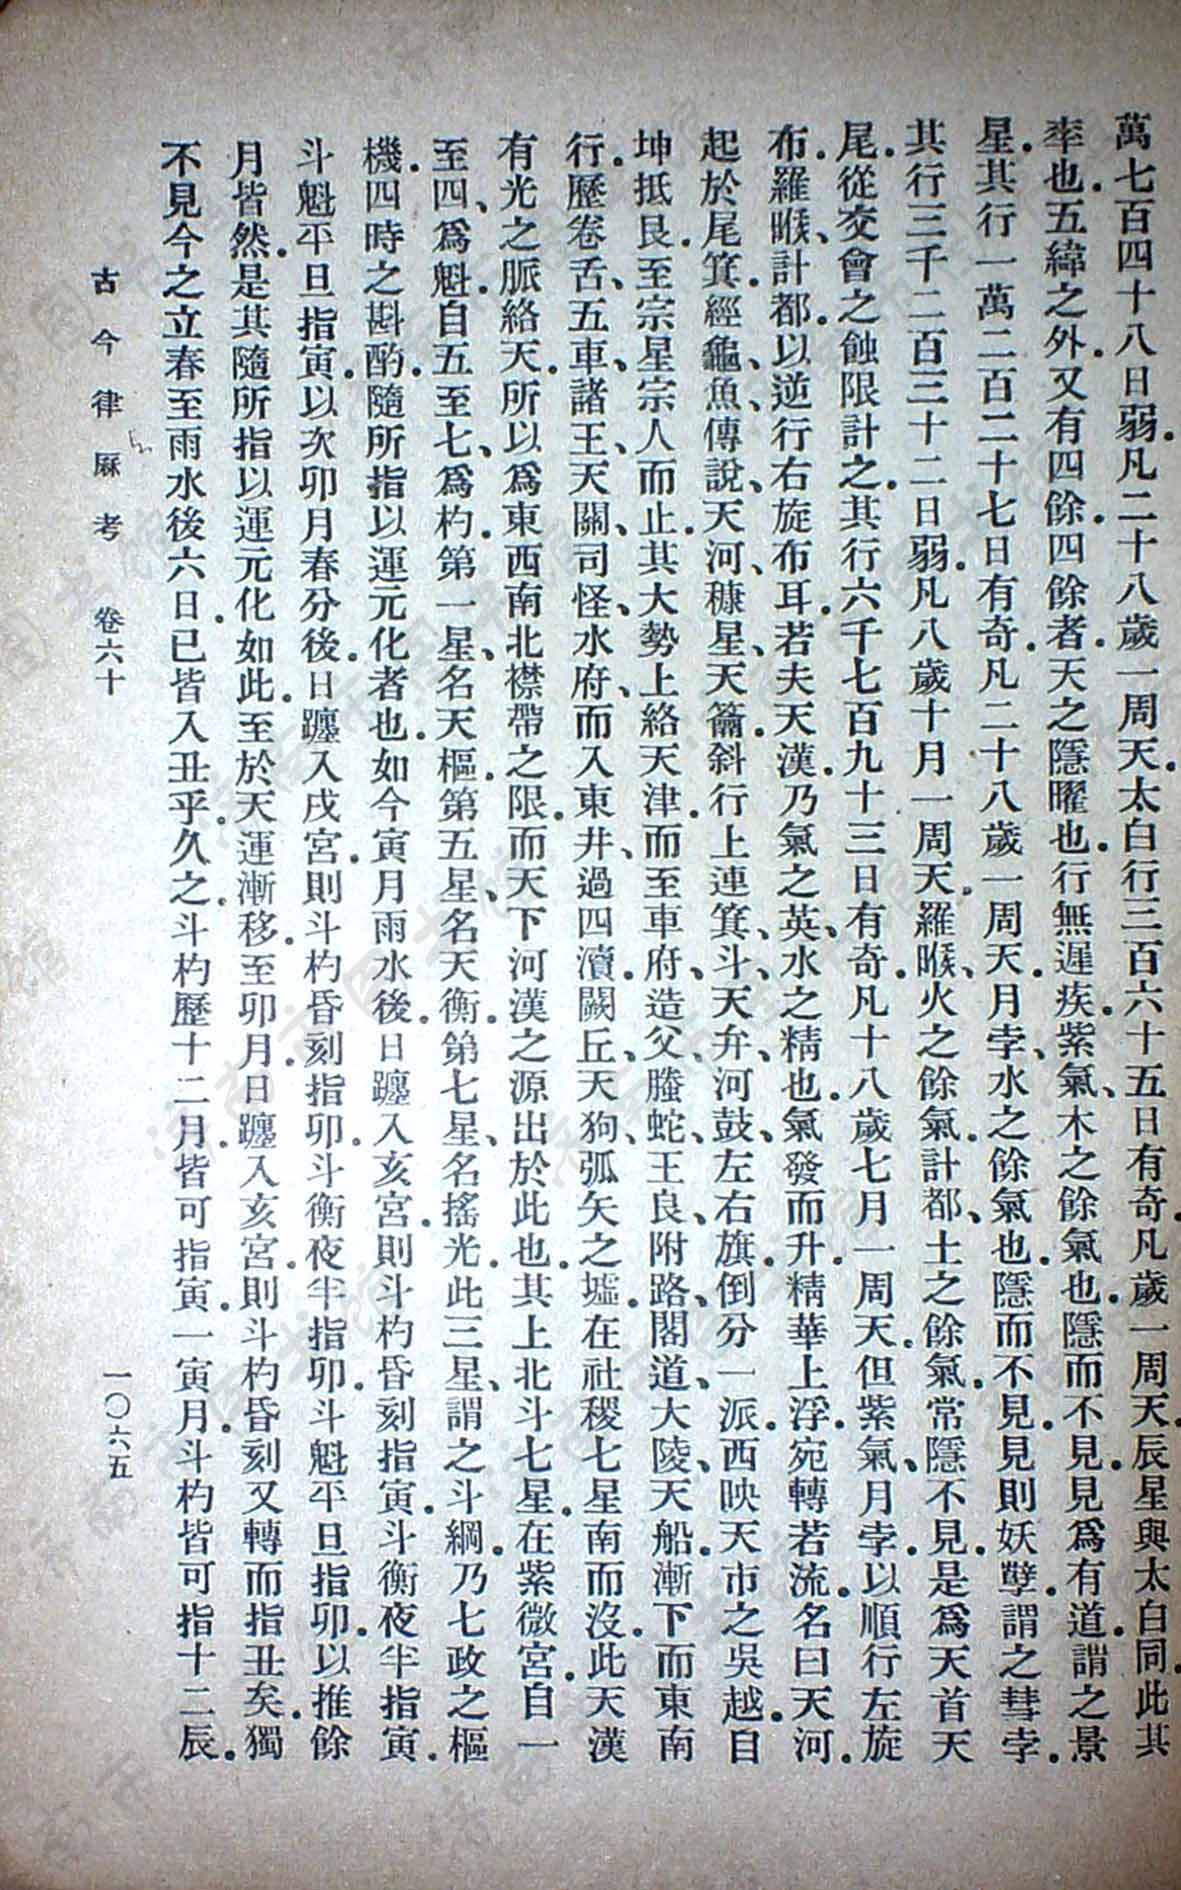 萬七百四十八日弱。凡二十八歲一周天。太白行三百六十五日有奇。凡歲一周天。辰星與太白同。此其
率也。五緯之外。又有四餘。四餘者。天之隱曜也。行無遲疾。紫氣、木之餘氣也。隱而不見。見爲有道。謂之景
星。其行一萬二百二十七日有奇。凡二十八歲一周天。月孛、水之餘氣也。隱而不見。見則妖孽。謂之彗孛。
其行三千二百三十二日弱。凡八歲十月一周天。羅㬋、火之餘氣。計都、土之餘氣。常隱不見。是爲天首天
尾。從交會之蝕限計之。其行六千七百九十三日有奇。凡十八歲七月一周天。但紫氣、月孛。以順行左旋
布。羅㬋、計都。以逆行右旋布耳。若夫天漢。乃氣之英、水之精也。氣發而升。精華上浮。宛轉若流。名曰天河。
起於尾箕。經龜、魚、傳說、天河、糠星、天籥。斜行上連箕、斗、天弁、河鼓、左右旗。倒分一派。西映天市之吳越。自
坤抵艮。至宗星宗人而止。其大勢上絡天津。而至車府、造父、螣蛇、王良、附路、閣道、大陵、天船。漸下而東南
行。歷卷舌、五車、諸王、天關、司怪、水府、而入東井、過四瀆。闕丘、天狗、弧矢之墟。在社稷七星南而沒。此天漢
有光之脈絡天。所以爲東西南北襟帶之限。而天下河漢之源出於此也。其上北斗七星。在紫微宮。自一
至四、爲魁。自五至七、爲杓。第一星、名天樞。第五星、名天衡。第七星、名搖光。此三星、謂之斗綱。乃七政之樞
機。四時之斟酌。隨所指以運元化者也。如今寅月雨水後。日躔入亥宮。則斗杓昏刻指寅。斗衡夜半指寅。
斗魁平旦指寅。以次卯月春分後。日躔入戌宮。則斗杓昏刻指卯。斗衡夜半指卯。斗魁平旦指卯。以推餘
月皆然。是其隨所指以運元化如此。至於天運漸移。至卯月。日躔入亥宮。則斗杓昏刻又轉而指丑矣。獨
不見今之立春至雨水後六日。已皆入丑乎。久之。斗杓歷十二月。皆可指寅。一寅月。斗杓皆可指十二辰。
古今律厤考 卷六十 一〇六五